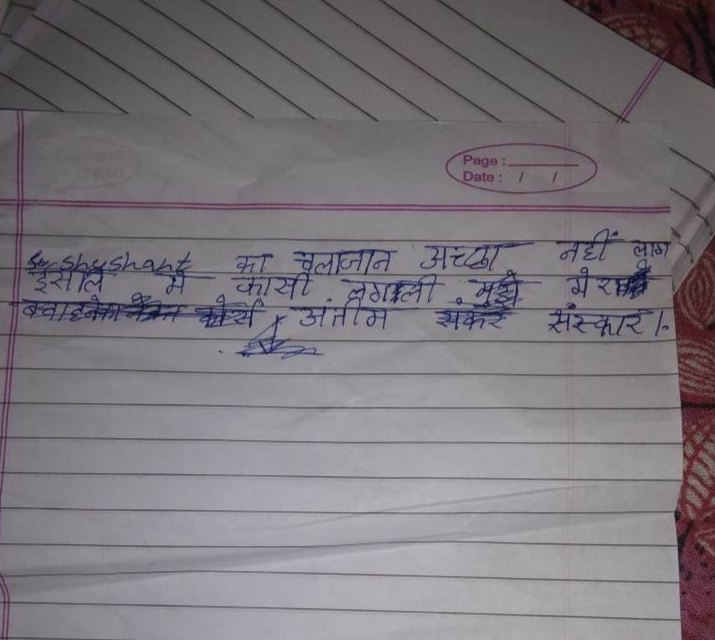 Page :
Date : / /
Sushant का चलाजान अच्छा नहीं लाग
इसलि मे फासी लगाली मुझे मेरा
अंतीम संस्कार ।.